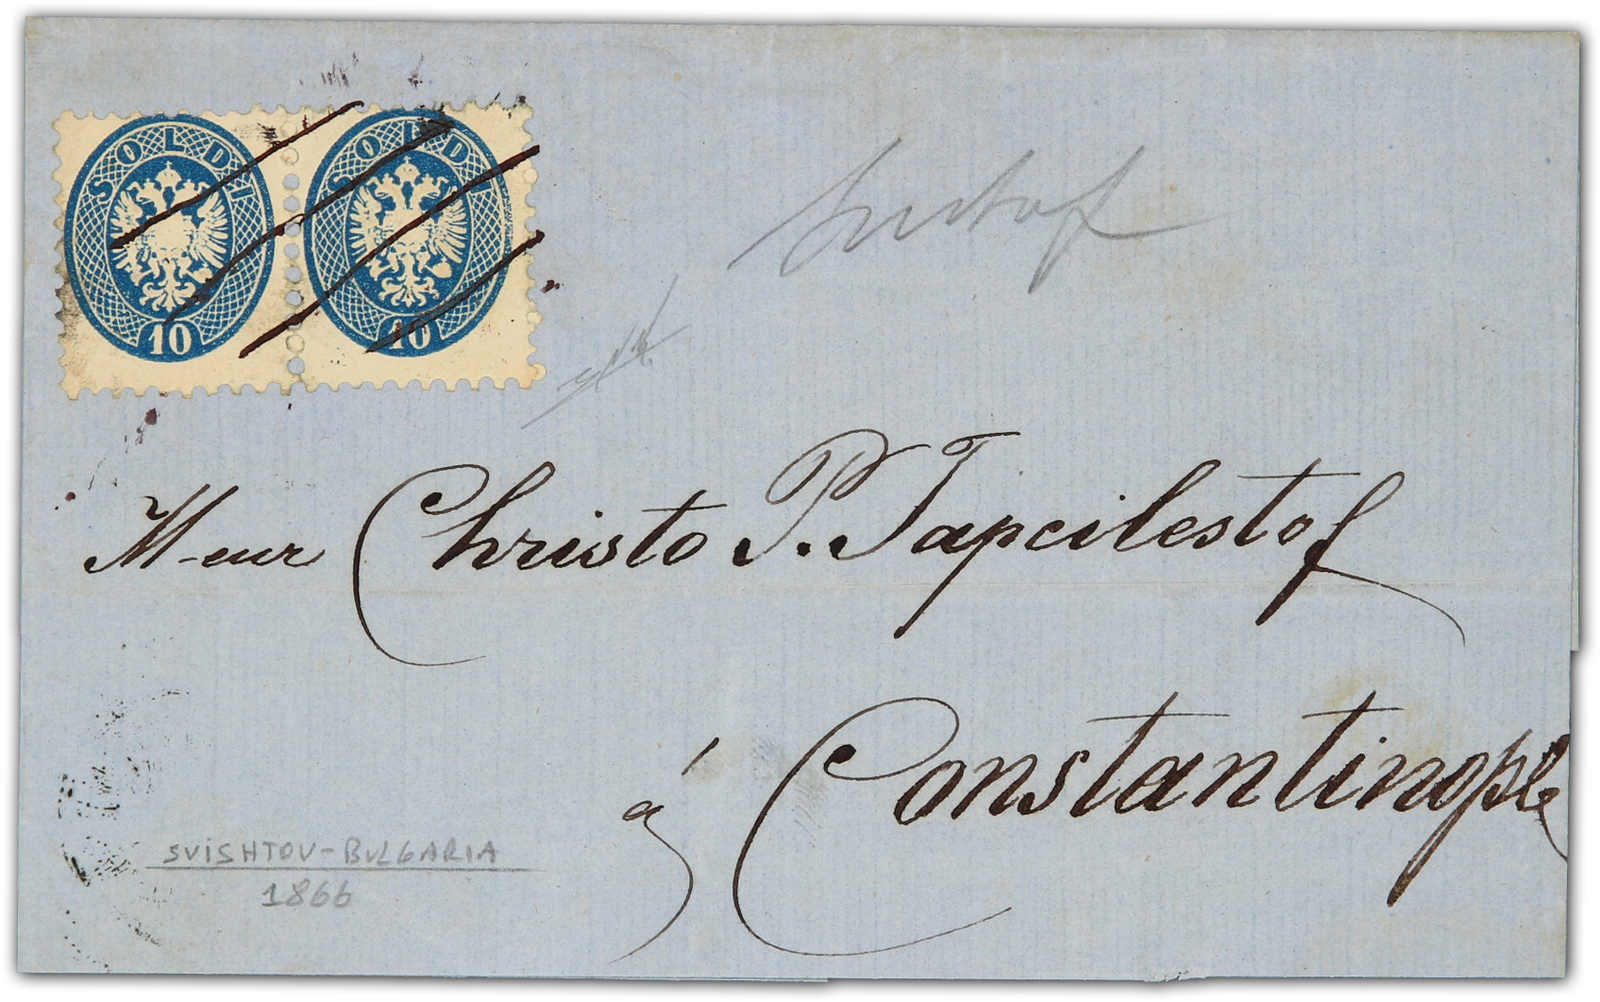 SOLDI SOLDI
10 10
M-eur Christo P. Tapcilestof
à Constantinople
SVISHTOV-BULGARIA
1866